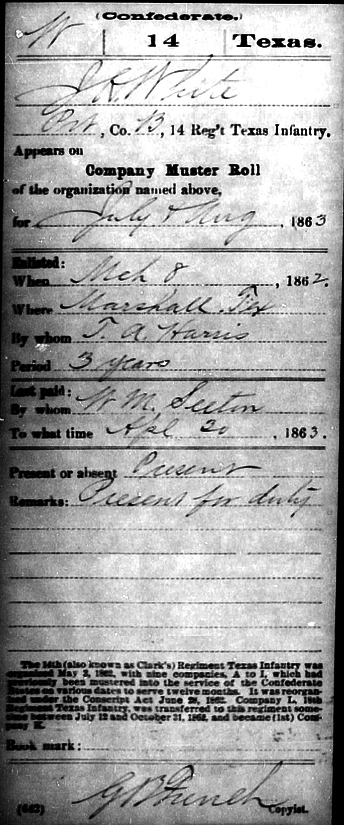 (Confederate.)
W | 14 | Texas.
J. R. White
Pvt, Co. B, 14 Reg't Texas Infantry.
Appears on
Company Muster Roll
of the organization named above,
for July & Aug, 1863
Enlisted:
When Mch 8, 1862.
Where Marshall, Tex
By whom T. A. Harris
Period 3 years
Last paid:
By whom W. M.
To what time Apl 20, 1863.
Present or absent Present
Remarks: Present for duty
The 14th (also known as Clark's) Regiment Texas Infantry was
organized May 2, 1862, with nine companies, A to I, which had
previously been mustered into the service of the Confederate
States on various dates to serve twelve months. It was reorgan-
ized under the Conscript Act June 28, 1862. Company L, 18th
Regiment Texas Infantry, was transferred to this regiment some-
time between July 12 and October 31, 1862, and became (1st) Com-
pany K.
Book mark:
G B French
(642) Copyist.